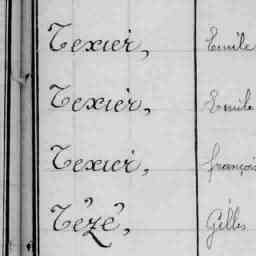 Texier, Emile
Texier, Emile
Texier, François
Tézé, Gilles